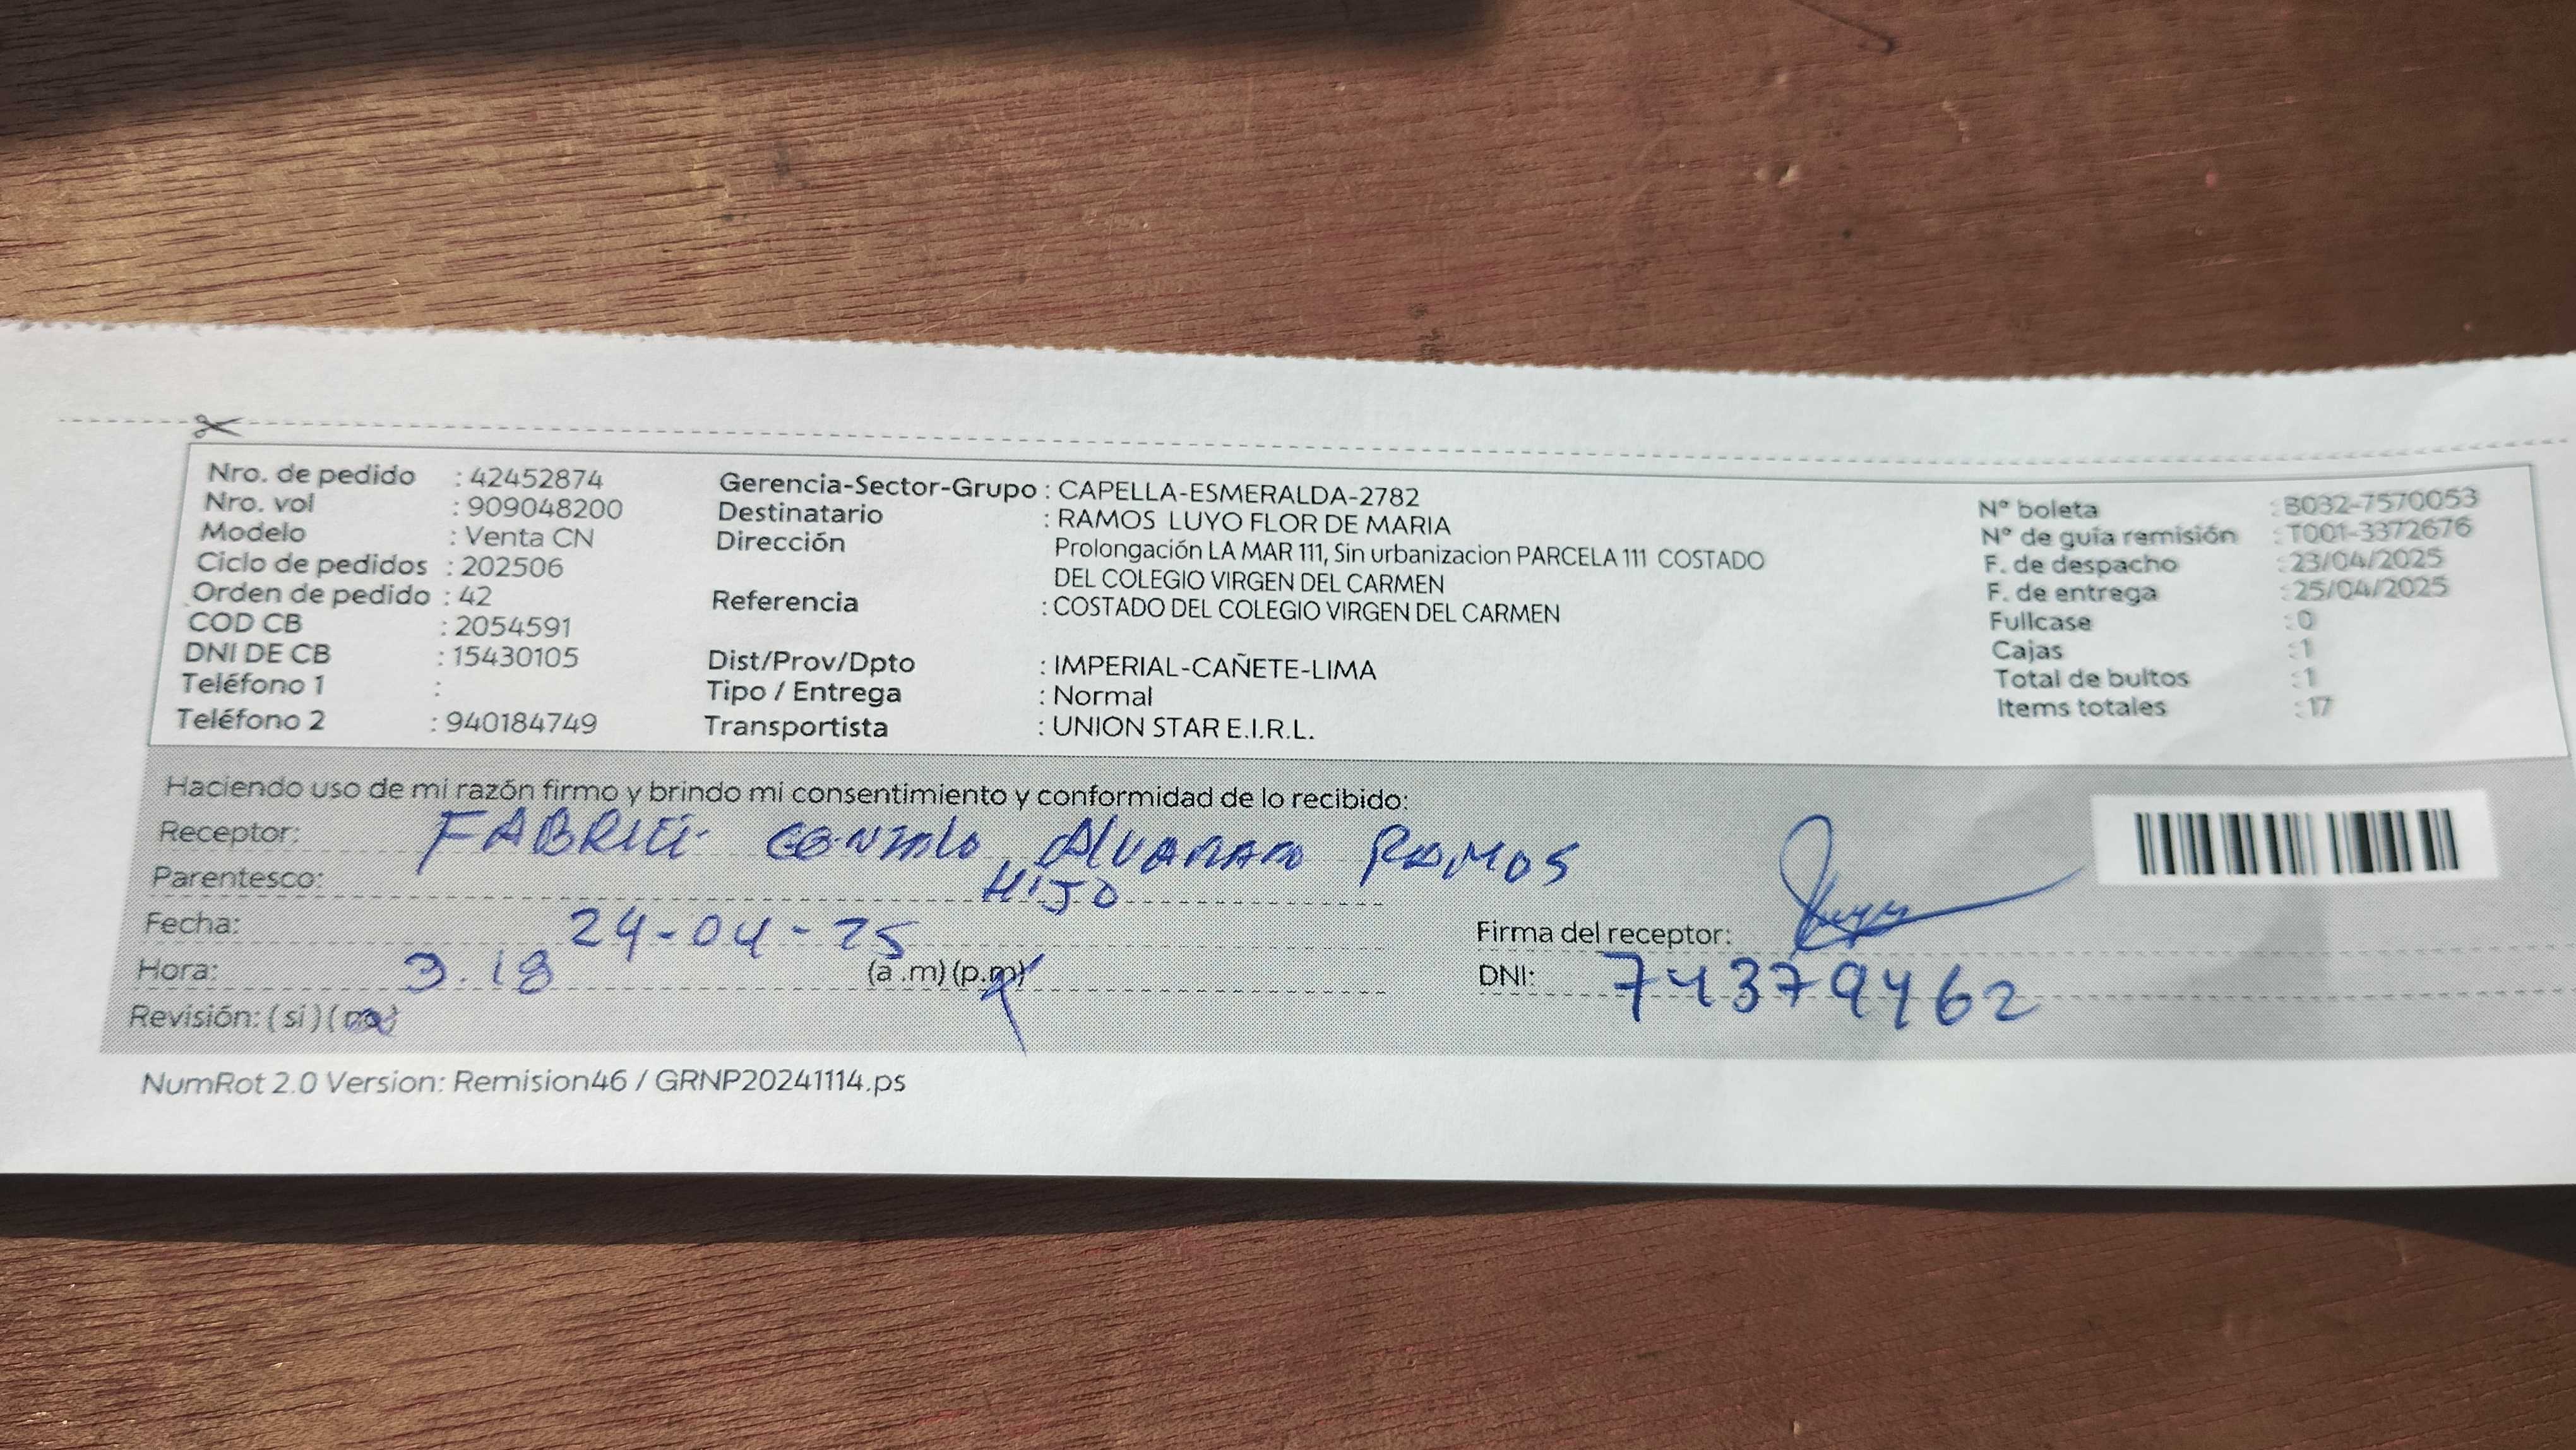 Nro. de pedido : 42452874
Nro. vol : 909048200
Modelo : Venta CN
Ciclo de pedidos : 202506
Orden de pedido : 42
COD CB : 2054591
DNI DE CB : 15430105
Teléfono 1 :
Teléfono 2 : 940184749
Gerencia-Sector-Grupo : CAPELLA-ESMERALDA-2782
Destinatario : RAMOS LUYO FLOR DE MARIA
Dirección Prolongación LA MAR 111, Sin urbanizacion PARCELA 111 COSTADO
DEL COLEGIO VIRGEN DEL CARMEN
Referencia : COSTADO DEL COLEGIO VIRGEN DEL CARMEN
Dist/Prov/Dpto : IMPERIAL-CAÑETE-LIMA
Tipo / Entrega : Normal
Transportista : UNION STAR E.I.R.L.
N° boleta : B032-7570053
N° de guía remisión : T001-3372676
F. de despacho : 23/04/2025
F. de entrega : 25/04/2025
Fullcase : 0
Cajas : 1
Total de bultos : 1
Items totales : 17
Haciendo uso de mi razón firmo y brindo mi consentimiento y conformidad de lo recibido:
Receptor: RAMOS
Parentesco: HIJO
Fecha: 24-04-25
Hora: 3.18 (a .m) (p.m)
Revisión: ( si ) ( no )
Firma del receptor:
DNI: 74379462
NumRot 2.0 Version: Remision46 / GRNP20241114.ps